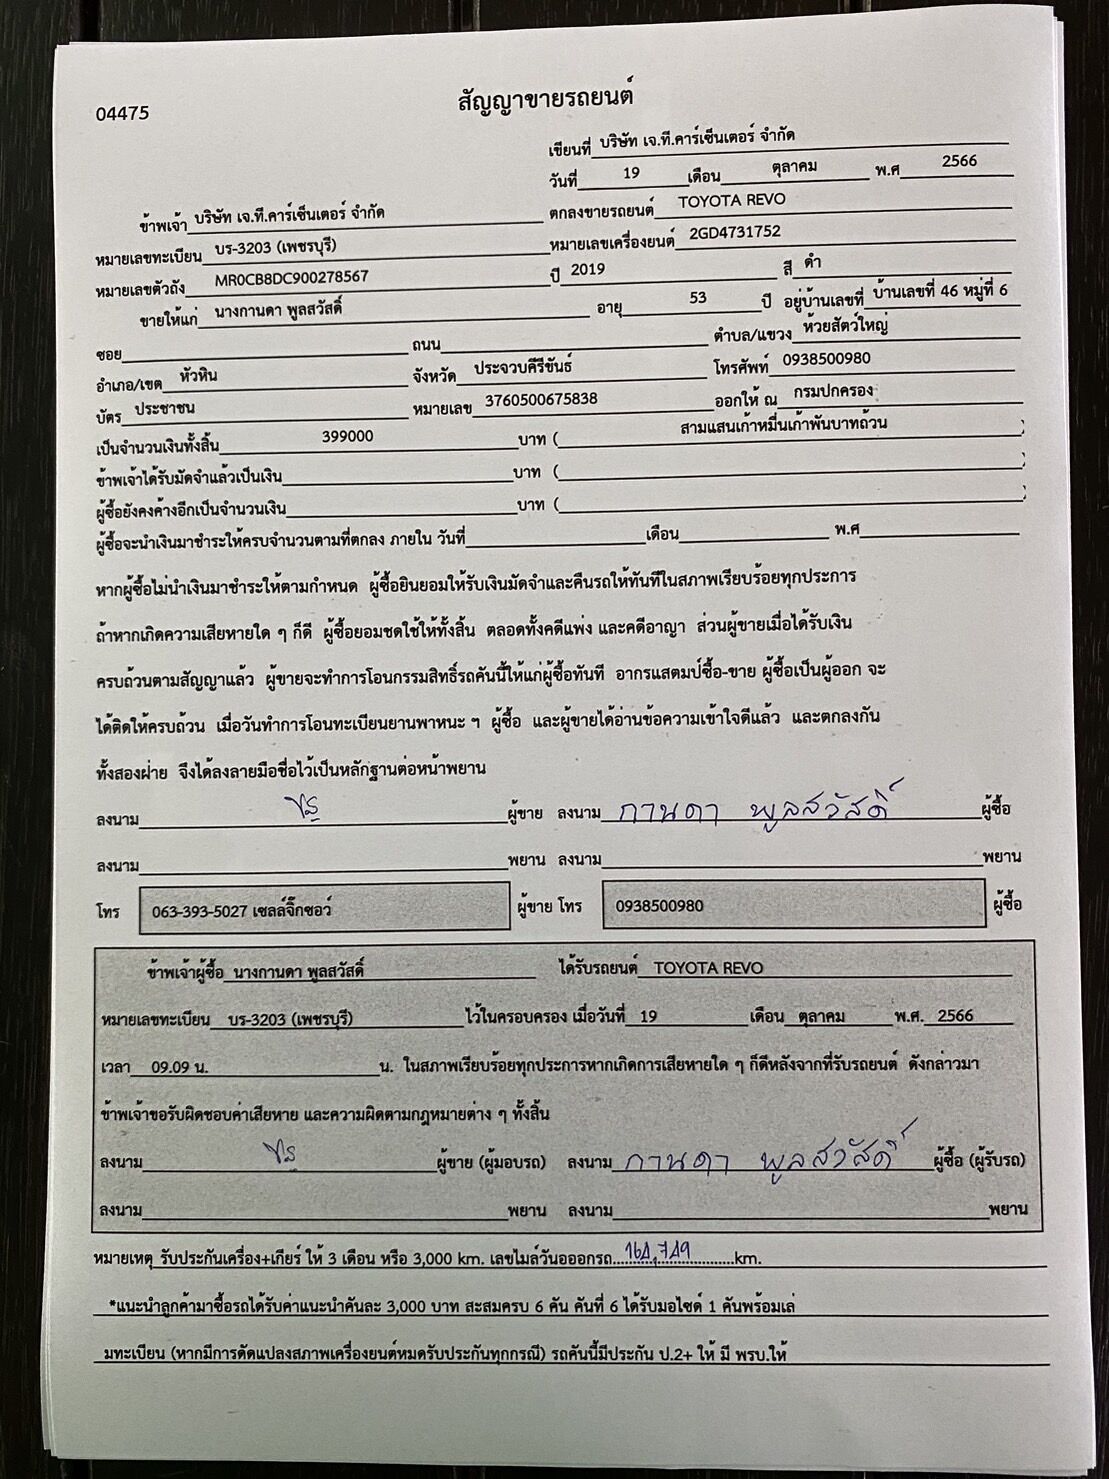 04475
สัญญาขายรถยนต์
เขียนที่ บริษัท เจ.ที.คาร์เซ็นเตอร์ จำกัด
วันที่ 19 เดือน ตุลาคม พ.ศ 2566
ข้าพเจ้า บริษัท เจ.ที.คาร์เซ็นเตอร์ จำกัด ตกลงขายรถยนต์ TOYOTA REVO
หมายเลขทะเบียน บร-3203 (เพชรบุรี) หมายเลขเครื่องยนต์ 2GD4731752
หมายเลขตัวถัง MR0CB8DC900278567 ปี 2019 สี ดำ
ขายให้แก่ นางกานดา พูลสวัสดิ์ อายุ 53 ปี อยู่บ้านเลขที่ บ้านเลขที่ 46 หมู่ที่ 6
ซอย ถนน ตำบล/แขวง ห้วยสัตว์ใหญ่
อำเภอ/เขต หัวหิน จังหวัด ประจวบคีรีขันธ์ โทรศัพท์ 0938500980
บัตร ประชาชน หมายเลข 3760500675838 ออกให้ ณ กรมปกครอง
เป็นจำนวนเงินทั้งสิ้น 399000 บาท ( สามแสนเก้าหมื่นเก้าพันบาทถ้วน )
ข้าพเจ้าได้รับมัดจำแล้วเป็นเงิน บาท ( )
ผู้ซื้อยังคงค้างอีกเป็นจำนวนเงิน บาท ( )
ผู้ซื้อจะนำเงินมาชำระให้ครบจำนวนตามที่ตกลง ภายใน วันที่ เดือน พ.ศ
หากผู้ซื้อไม่นำเงินมาชำระให้ตามกำหนด ผู้ซื้อยินยอมให้รับเงินมัดจำและคืนรถให้ทันทีในสภาพเรียบร้อยทุกประการ
ถ้าหากเกิดความเสียหายใด ๆ ก็ดี ผู้ซื้อยอมชดใช้ให้ทั้งสิ้น ตลอดทั้งคดีแพ่ง และคดีอาญา ส่วนผู้ขายเมื่อได้รับเงิน
ครบถ้วนตามสัญญาแล้ว ผู้ขายจะทำการโอนกรรมสิทธิ์รถคันนี้ให้แก่ผู้ซื้อทันที อากรแสตมป์ซื้อ-ขาย ผู้ซื้อเป็นผู้ออก จะ
ได้ติดให้ครบถ้วน เมื่อวันทำการโอนทะเบียนยานพาหนะ ฯ ผู้ซื้อ และผู้ขายได้อ่านข้อความเข้าใจดีแล้ว และตกลงกัน
ทั้งสองฝ่าย จึงได้ลงลายมือชื่อไว้เป็นหลักฐานต่อหน้าพยาน
ลงนาม ผู้ขาย ลงนาม กานดา พูลสวัสดิ์ ผู้ซื้อ
ลงนาม พยาน ลงนาม พยาน
โทร 063-393-5027 เซลล์จิ๊กซอว์ ผู้ขาย โทร 0938500980 ผู้ซื้อ
ข้าพเจ้าผู้ซื้อ นางกานดา พูลสวัสดิ์ ได้รับรถยนต์ TOYOTA REVO
หมายเลขทะเบียน บร-3203 (เพชรบุรี) ไว้ในครอบครอง เมื่อวันที่ 19 เดือน ตุลาคม พ.ศ. 2566
เวลา 09.09 น. น. ในสภาพเรียบร้อยทุกประการหากเกิดการเสียหายใด ๆ ก็ดีหลังจากที่รับรถยนต์ ดังกล่าวมา
ข้าพเจ้าขอรับผิดชอบค่าเสียหาย และความผิดตามกฎหมายต่าง ๆ ทั้งสิ้น
ลงนาม ผู้ขาย (ผู้มอบรถ) ลงนาม กานดา พูลสวัสดิ์ ผู้ซื้อ (ผู้รับรถ)
ลงนาม พยาน ลงนาม พยาน
หมายเหตุ รับประกันเครื่อง+เกียร์ ให้ 3 เดือน หรือ 3,000 km. เลขไมล์วันอออกรถ 164,749 km.
*แนะนำลูกค้ามาซื้อรถได้รับค่าแนะนำคันละ 3,000 บาท สะสมครบ 6 คัน คันที่ 6 ได้รับมอไซด์ 1 คันพร้อมเล่
มทะเบียน (หากมีการดัดแปลงสภาพเครื่องยนต์หมดรับประกันทุกกรณี) รถคันนี้มีประกัน ป.2+ ให้ มี พรบ.ให้